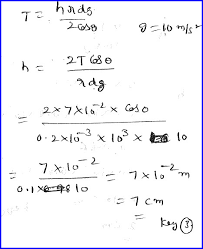 T = hrdg / 2cosθ g = 10 m/s²
h = 2T cosθ / rdg
= 2×7×10⁻² × cos0 / 0.2×10⁻³ × 10³ × 10
= 7×10⁻² / 0.1× 10 = 7×10⁻² m
= 7 cm
= key ③